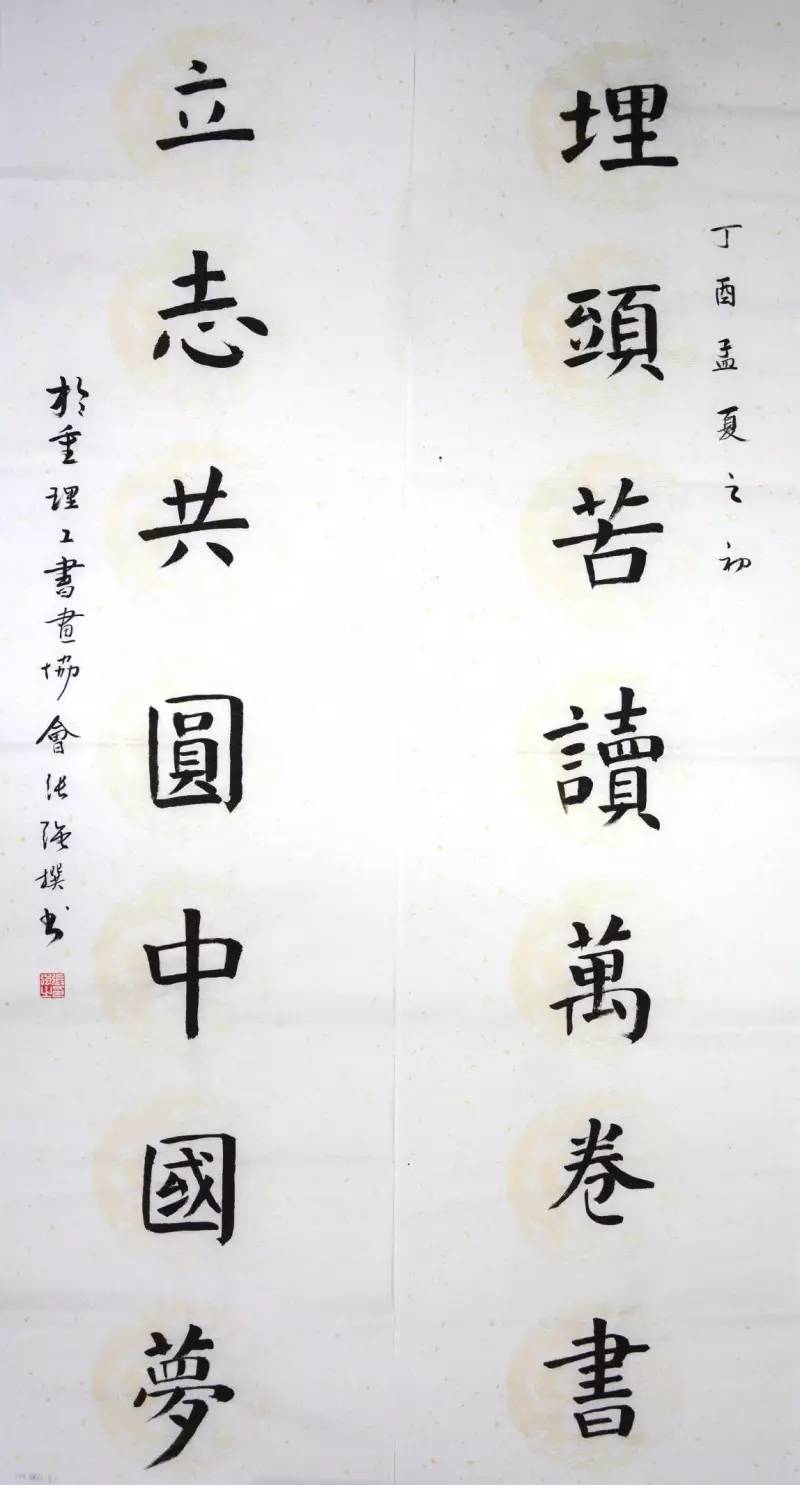 丁酉孟夏之初
埋頭苦讀萬卷書
立志共圓中國夢
於重理工書畫協會張強撰書